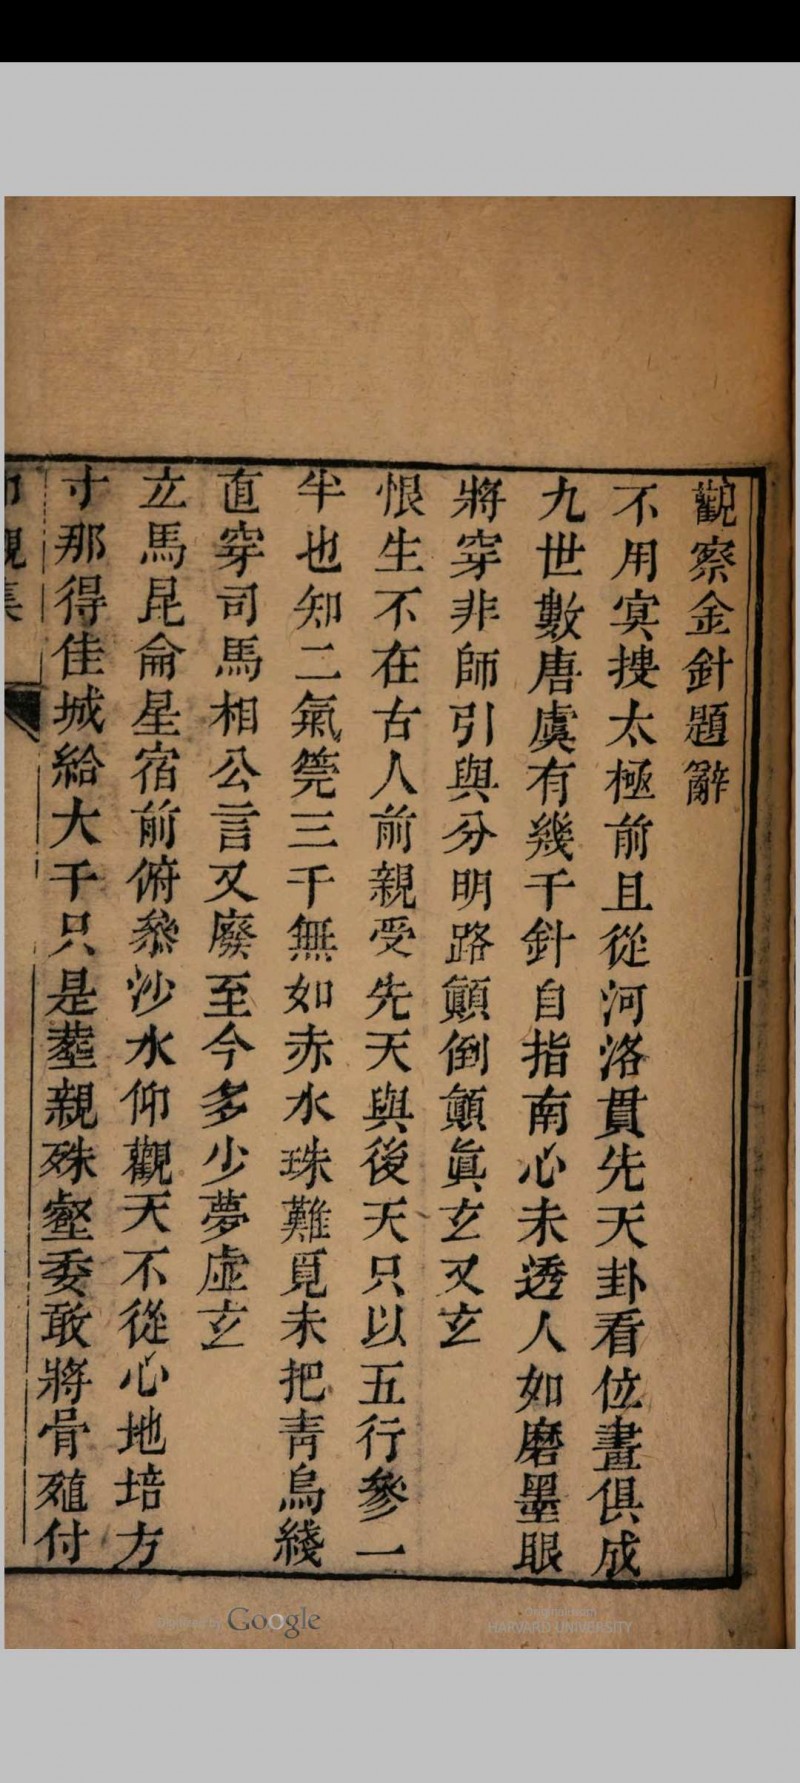 觀察金針題辭
不用冥搜太極前且從河洛貫先天卦看位畫俱成
九世數唐虞有幾千針自指南心未透人如磨墨眼
將穿非師引與分明路顛倒顛眞玄又玄
恨生不在古人前親受先天與後天只以五行參一
半也知二氣筦三千無如赤水珠難覓未把靑烏綫
直穿司馬相公言又廢至今多少夢虛玄
立馬昆侖星宿前俯叅沙水仰觀天不從心地培方
寸那得佳城給大千只是虆親殊壑委敢將骨殖付
Google
HARVARD UNIVERSITY